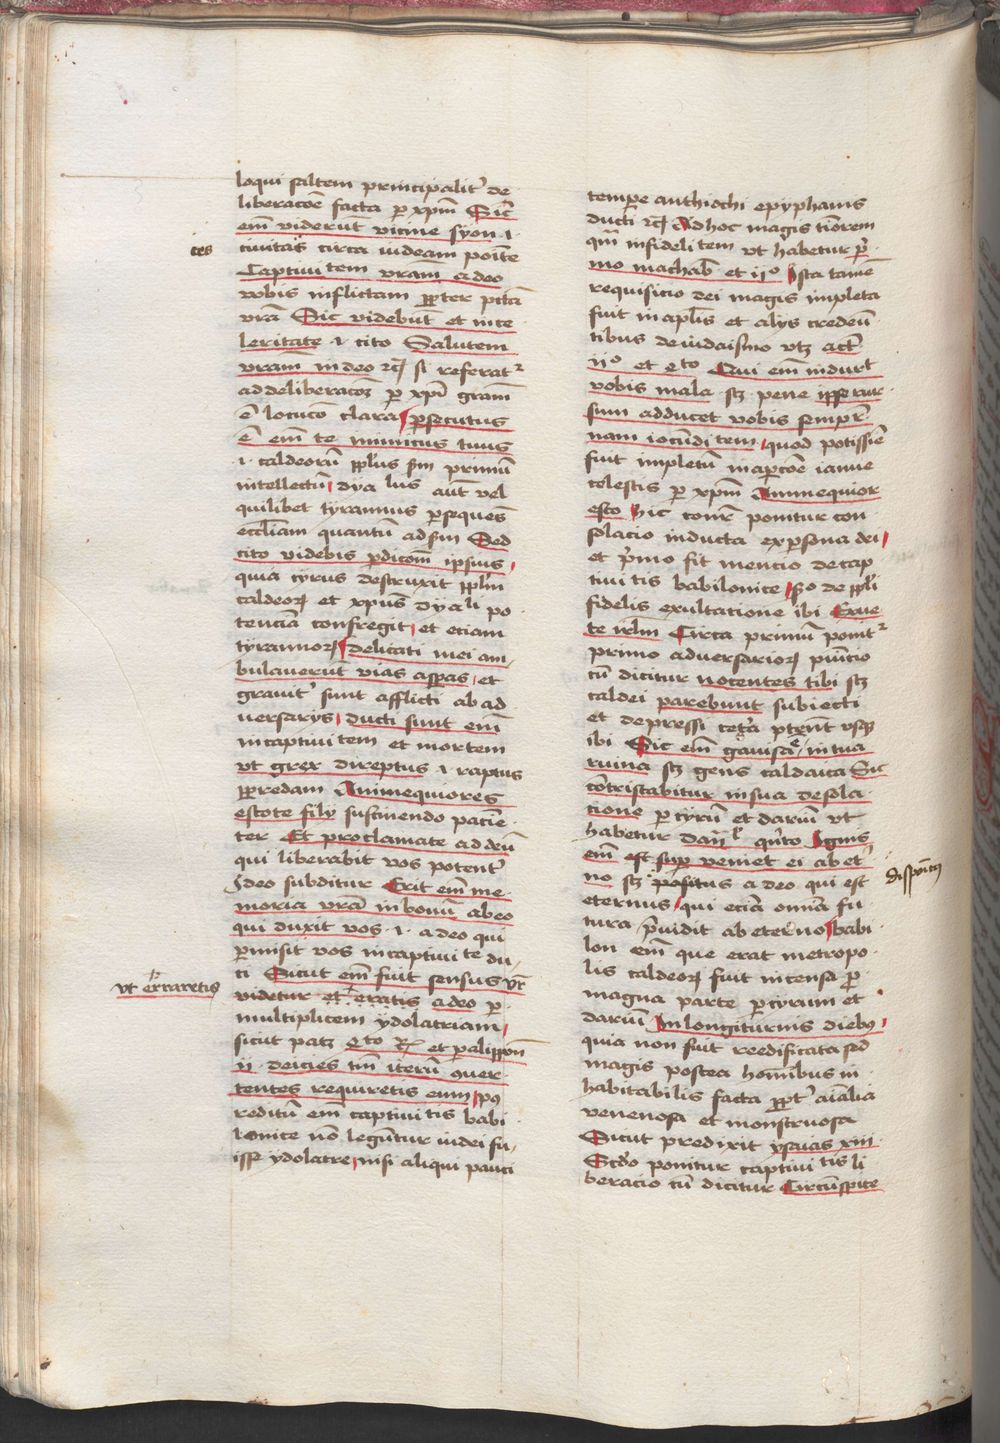 loqui saltem principalit͛ de
liberacōe facta p xpm̄ Sic̄
em̄ viderūt vicine syon .i.
ces
civitas circa iudeam poīte
Captivitem vram̄ a deo
vobis inflictam ꝓpter pctā
vrā Sic videbūt et in ce
leritate .i. cito Salutem
vram̄ in deo ⁊cꝫ si referat᷑
ad deliberacōꝫ p xpī gram̄
ē locuco clara ꝑsecutus
ē em̄ te inimicus tuus
.i. caldeorū pplus scdm̄ primū
intellectū dya lus aut̄ vel
quilibet tyrannus ꝑsequēs
eccliam quantū ad scdm̄ Sed
cito videbis ꝑdicōm ipsius
quia cyrus destruxit pplm̄
caldeoꝝ et xpus dyali po
tenciā confregit et eciam
tyrannoꝝ Delicati mei am
bulaverūt vias aspas et
gravit͛ sunt afflicti ab ad
versarys ducti sunt em̄
in captivitem et mortem
vt grex direptus .i. raptus
ꝓpredam Animequiores
estote fily sustinendo pacīe
ter Et proclamate ad deū
qui liberabit vos potent͛
Ideo subditur Erit em̄ me
moria vrā in bonū ab eo
qui duxit vos .i. a deo qui
ꝑmisit vos in captivite du
ci Sicut em̄ fuit sensus vr̄
vt erraretis
videtur et eratis a deo p
multiplicem ydolatriam
sicut patꝫ 4to Rꝫ et palippōn
ii deicies tm̄ iterū 9ver
tentes requiretis eum pꝰ
reditū em̄ captivitis babi
lonice nō legūtur iudei fu
isse ydolatre nisi aliqui pauci
tempe anthiochi epyphanis
ducti ⁊cꝫ Ad hoc magis tiōrem
qm̄ infidelitem vt habetur p̄
mo machab̄ et iiº Ista tamē
requisicio dei magis impleta
fuit in aplis et alys credēn
tibus de iudaismo vtꝫ act̄
iiº et 4to Qui em̄ indurt̄
vobis mala sꝫ pene ipse rur
sum adducet vobis sempr̄
nam iocūditem quod potissīe
fuit impletū in apcōe ianue
celestis p xpm̄ Animequior
esto hic cōnr̄ ponitur con
solacio inducta ex psona dei
et p̄mo fit mencio de cap
tivitis babilonice so de ppli
fidelis exultacione ibi Exue
te irlm̄ Circa primū ponit᷑
primo adversarioꝝ punicio
cū dicitur nocentes tibi sꝫ
caldei parebunt subiecti
et depressi cet̄a ptent vsqꝫ
ibi Sic em̄ gavisa ē in tua
ruina sꝫ gens caldaica Sic
cōtristabitur in sua desola
cione p cyrū et dariū vt
habetur Dan̄l qnto Ignis
em̄ est super veniet ei ab et
disponitꝰ
no sꝫ positus a deo qui est
eternus qui eciā omnia fu
tura p̄vidit ab eterno babi
lon em̄ que erat metropo
lis caldeoꝝ fuit incensa p
magna parte p cyrum et
dariū In longiturnis diebꝰ
quia non fuit reedificata sed
magis postea homībus in
habitabilis facta ꝓpt͛ aīalia
venenosa et monstruosa
Sicut predixit ysaias xiii
Scdo ponitur captivitis li
beracio cū dicitur Circūspice